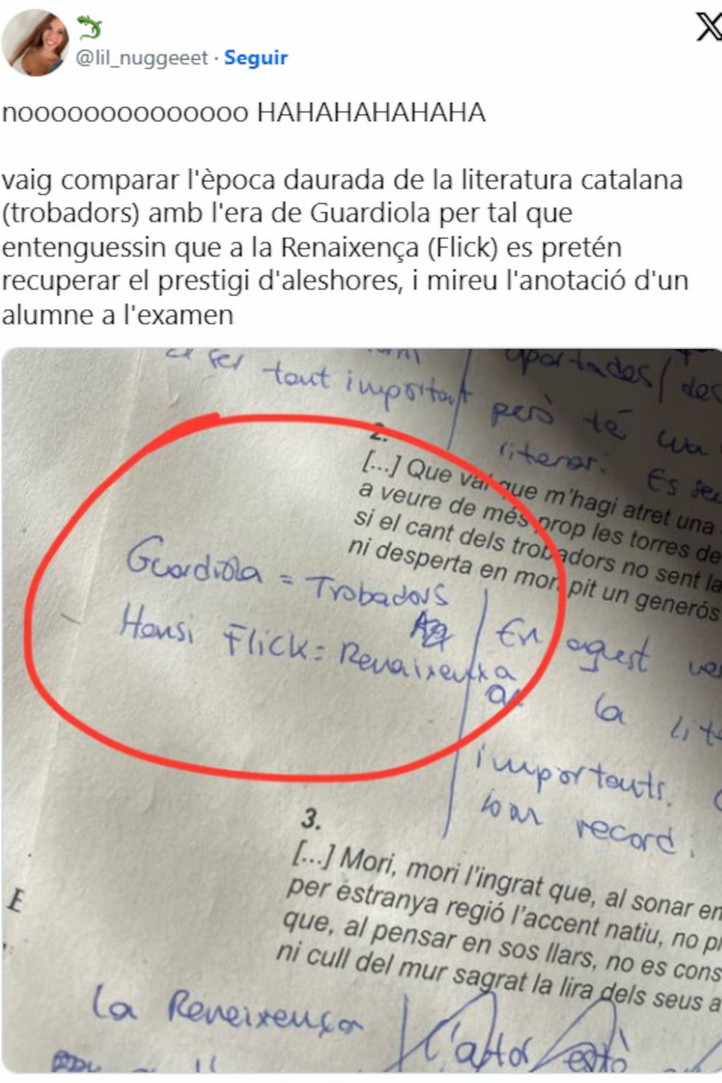 @lil_nuggeeet · Seguir
nooooooooooooooo HAHAHAHAHAHA
vaig comparar l'època daurada de la literatura catalana
(trobadors) amb l'era de Guardiola per tal que
entenguessin que a la Renaixença (Flick) es pretén
recuperar el prestigi d'aleshores, i mireu l'anotació d'un
alumne a l'examen
ser tant important
aportades/des
però té un
literari. Es
2.
[...] Que val que m'hagi atret una
a veure de més prop les torres de
si el cant dels trobadors no sent la
ni desperta en mon pit un generós
Guardiola = Trobadors
Hansi Flick = Renaixenxa
En aquest
la lit
importants.
record i
3.
[...] Mori, mori l'ingrat que, al sonar en
per estranya regió l'accent natiu, no pl
que, al pensar en sos llars, no es cons
ni cull del mur sagrat la lira dels seus a
E
la Reneixença
L'autor està